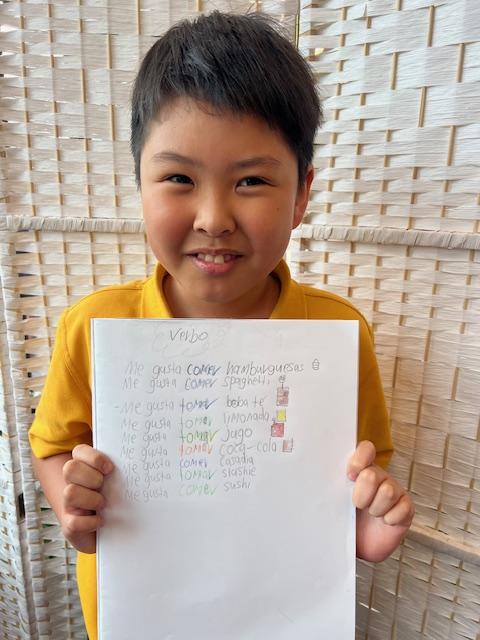 Verbo
Me gusta comer hamburguesas
Me gusta comer spaghetti
- Me gusta tomar boba te
Me gusta tomar limonada
Me gusta tomar jugo
Me gusta tomar coca-cola
Me gusta comer
Me gusta tomar slashie
Me gusta comer sushi